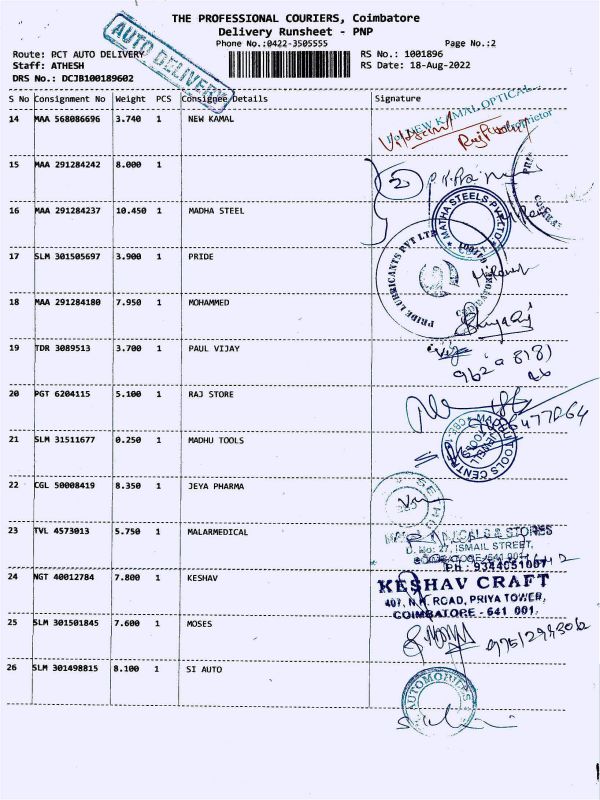 THE PROFESSIONAL COURIERS, Coimbatore
Delivery Runsheet - PNP
Phone No.:0422-3505555 Page No.:2
Route: PCT AUTO DELIVERY RS No.: 1001896
Staff: ATHESH RS Date: 18-Aug-2022
DRS No.: DCJB100189602
AUTO DELIVERY
S No Consignment No Weight PCS Consignee Details Signature
14 MAA 568086696 3.740 1 NEW KAMAL
NEW KAMAL OPTICAL
Proprietor
15 MAA 291284242 8.000 1
2
16 MAA 291284237 10.450 1 MADHA STEEL
MATHA STEELS PVT LTD
17 SLM 301505697 3.900 1 PRIDE
PRIDE LUBRICANTS PVT LTD
18 MAA 291284180 7.950 1 MOHAMMED
19 TDR 3089513 3.700 1 PAUL VIJAY
20 PGT 6204115 5.100 1 RAJ STORE
21 SLM 31511677 0.250 1 MADHU TOOLS
TOOLS CENTRE
22 CGL 50008419 8.350 1 JEYA PHARMA
23 TVL 4573013 5.750 1 MALARMEDICAL
& STORES
D. No: 27, ISMAIL STREET,
Ph : 9344051007
24 NGT 40012784 7.800 1 KESHAV
KESHAV CRAFT
407, N.H. ROAD, PRIYA TOWER,
COIMBATORE - 641 001.
25 SLM 301501845 7.600 1 MOSES
26 SLM 301498815 8.100 1 SI AUTO